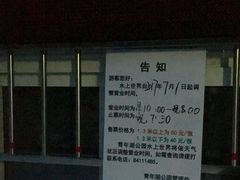 告 知
游客您好：
水上世界自17年7月1日起调
整营业时间。
营业时间为：早10:00-晚8:00
止票时间为：晚7:30
售票价格为 1.3米以上为60元/张
1.3米以下为40元/张
青年湖公园水上世界将依天气
状况调整营业时间，如需查询请拨打
联系电话：84111485.
青年湖公园管理处